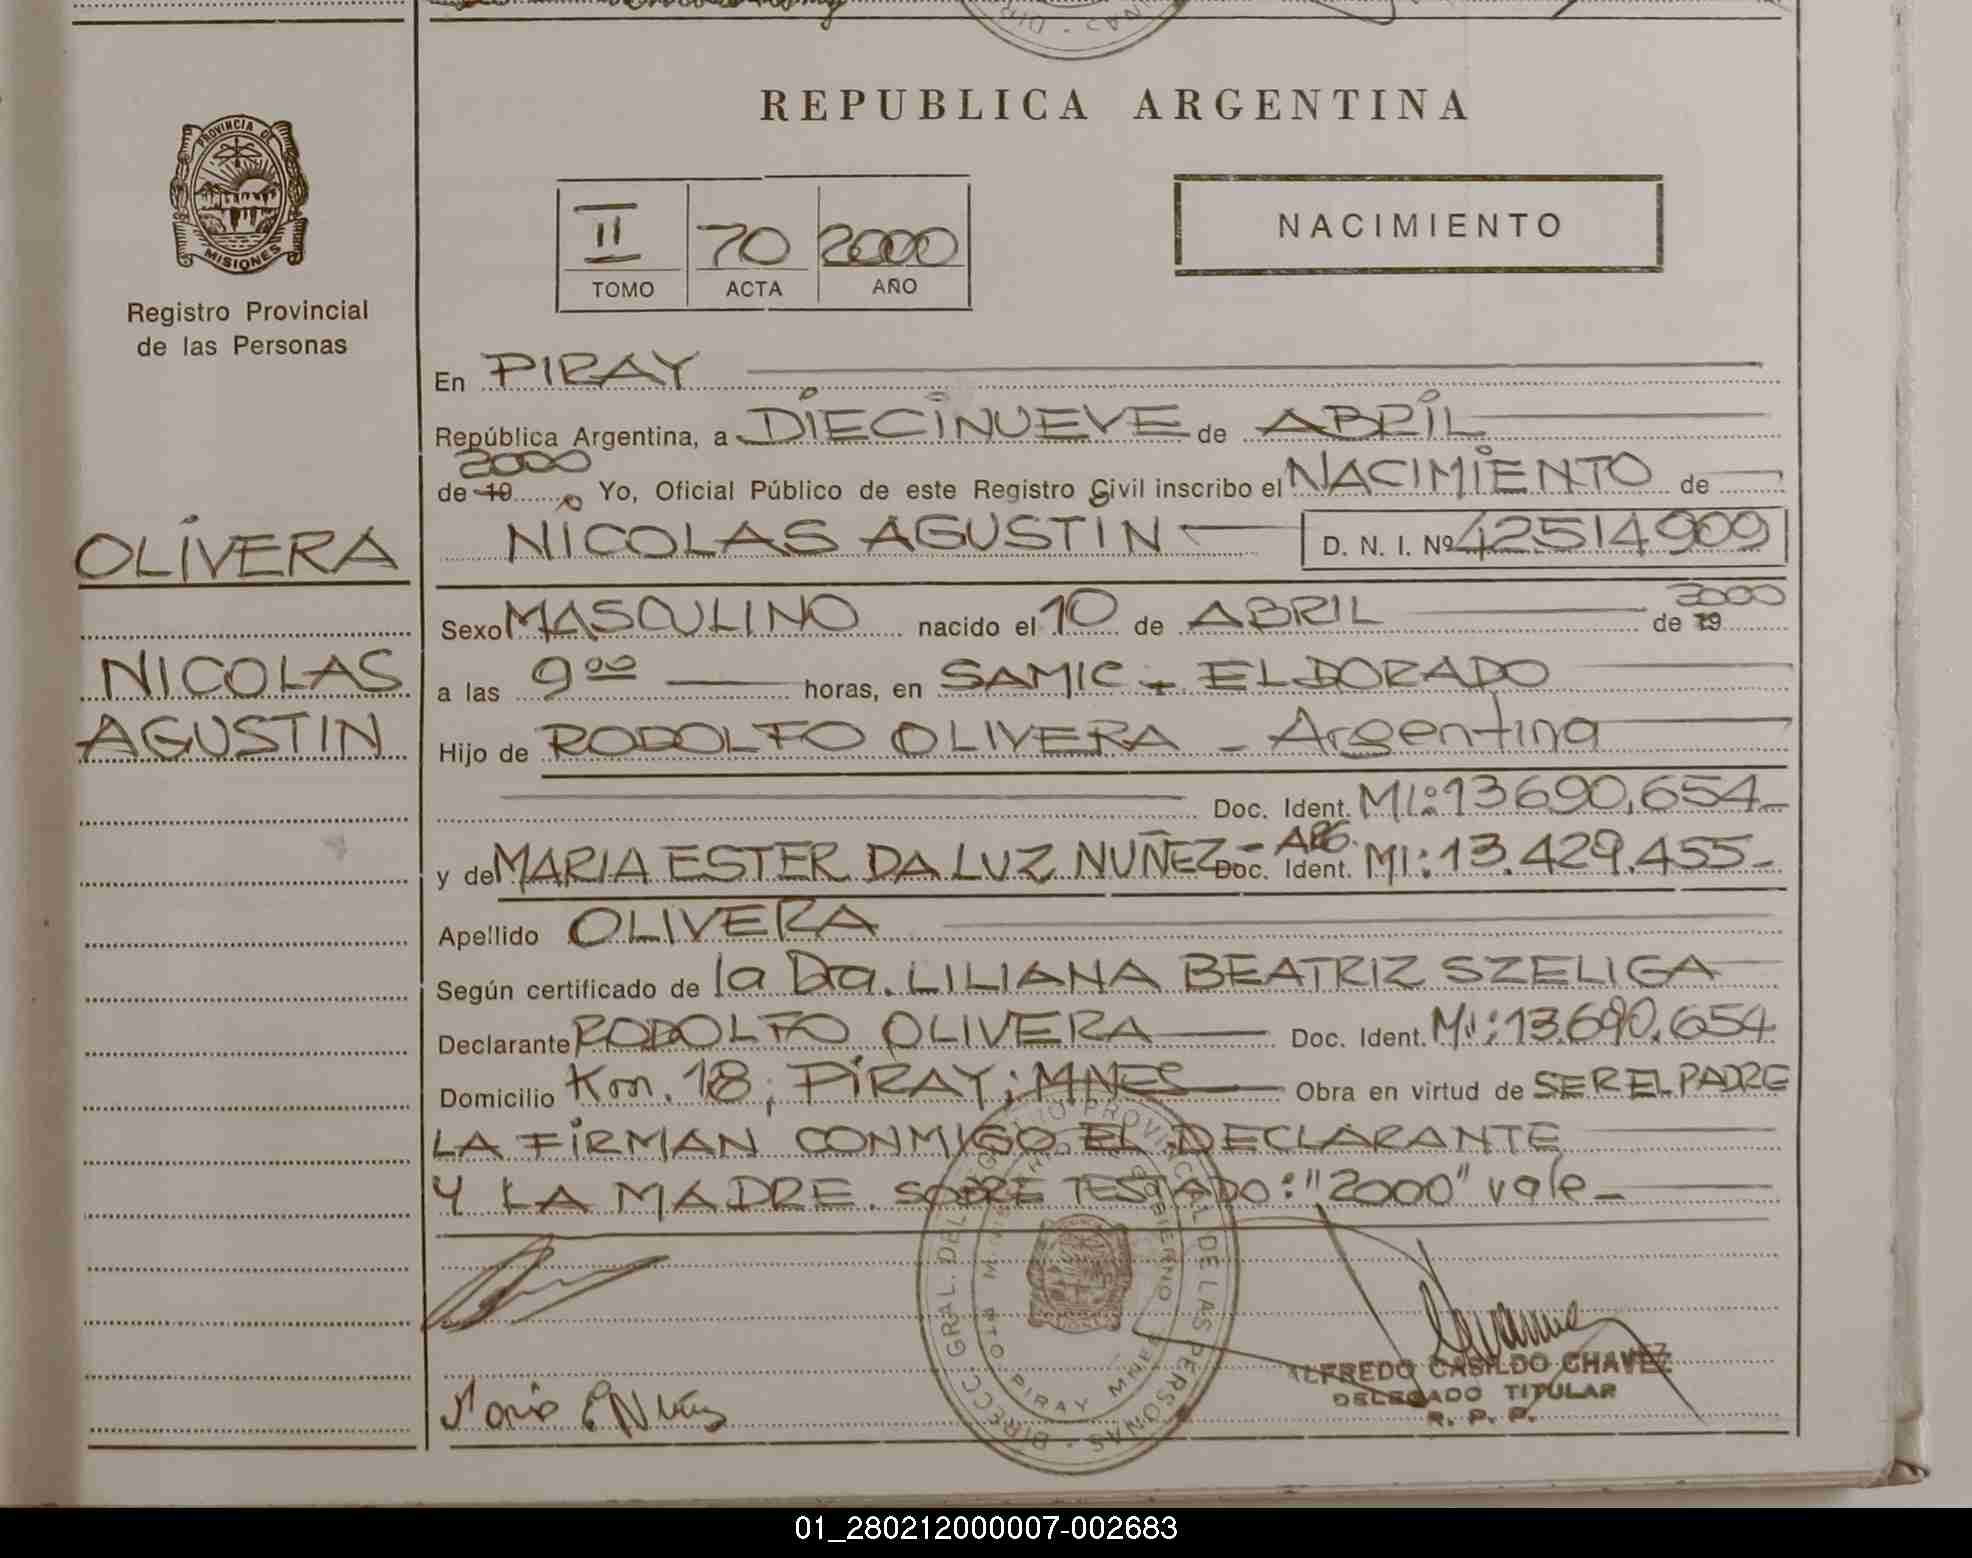 REPUBLICA ARGENTINA
PROVINCIA DE
MISIONES
Registro Provincial
de las Personas
II 70 2000
TOMO ACTA AÑO
NACIMIENTO
En PIRAY
República Argentina, a DIECINUEVE de ABRIL
2000
de 19 Yo, Oficial Público de este Registro Civil inscribo el NACIMIENTO de
OLIVERA
NICOLAS AGUSTIN D. N. I. Nº 42514909
2000
Sexo MASCULINO nacido el 10 de ABRIL de 19
NICOLAS
a las 9 00 horas, en SAMIC - ELDORADO
AGUSTIN
Hijo de RODOLFO OLIVERA - Argentina
Doc. Ident. MI: 13690.654-
y de MARIA ESTER DA LUZ NUÑEZ - ARG. Doc. Ident. MI: 13.429.455-
Apellido OLIVERA
Según certificado de la Dra. LILIANA BEATRIZ SZELIGA
Declarante RODOLFO OLIVERA Doc. Ident. MI: 13.690.654
Domicilio Km. 18; PIRAY; MNES Obra en virtud de SER EL PADRE
LA FIRMAN CONMIGO EL DECLARANTE
Y LA MADRE. SOBRE TESTADO: "2000" vale-
DIRECC. GRAL. DEL REGISTRO PROVINCIAL DE LAS PERSONAS
PIRAY MNES
ALFREDO CASILDO CHAVEZ
DELEGADO TITULAR
R. P. P.
01_280212000007-002683